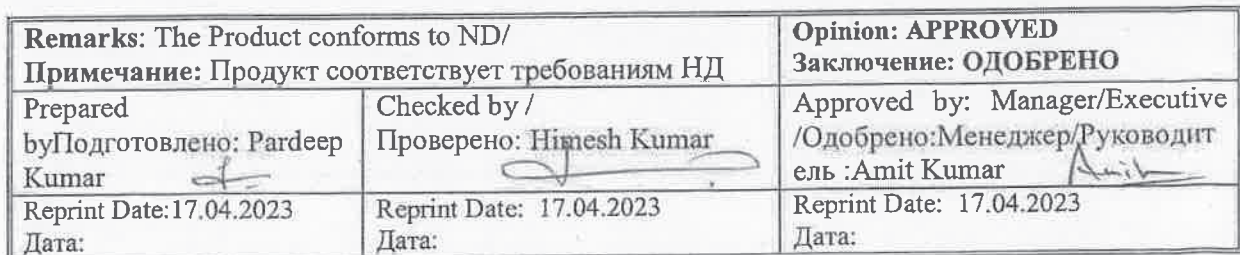 Remarks: The Product conforms to ND/
Примечание: Продукт соответствует требованиям НД
Opinion: APPROVED
Заключение: ОДОБРЕНО
Prepared
byПодготовлено: Pardeep
Kumar
Checked by /
Проверено: Himesh Kumar
Approved by: Manager/Executive
/Одобрено:Менеджер/Руководит
ель :Amit Kumar
Amit
Reprint Date:17.04.2023
Дата:
Reprint Date: 17.04.2023
Дата:
Reprint Date: 17.04.2023
Дата: